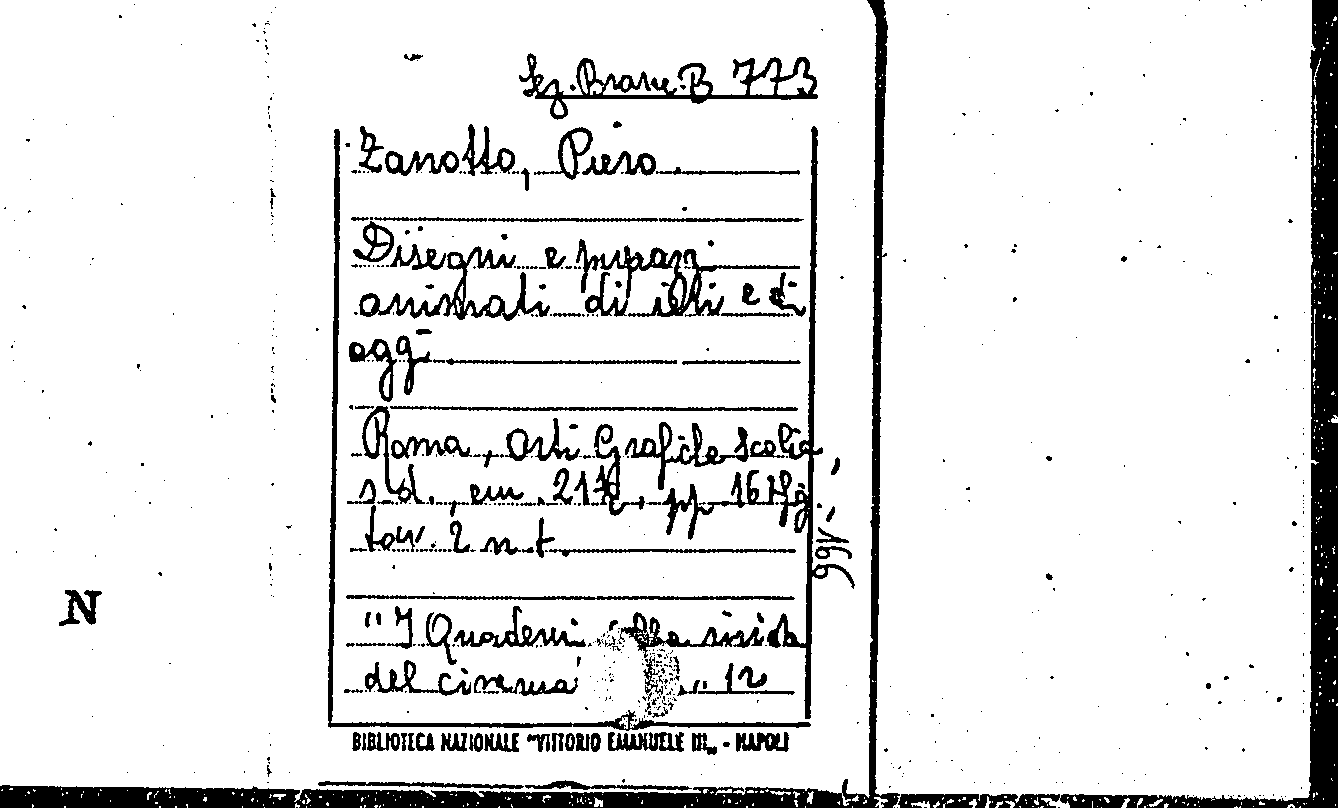 Sez. Branc. B 773
Zanotto, Piero.
Disegni e pupazzi
animati di ieri e di
oggi.
Roma, Arti Grafiche Scalia,
s.d., cm. 21½, pp. 167,
tav. 2 n.t.
166
"I Quaderni della rivista
del cinema „ 12
N
BIBLIOTECA NAZIONALE "VITTORIO EMANUELE III„ - NAPOLI